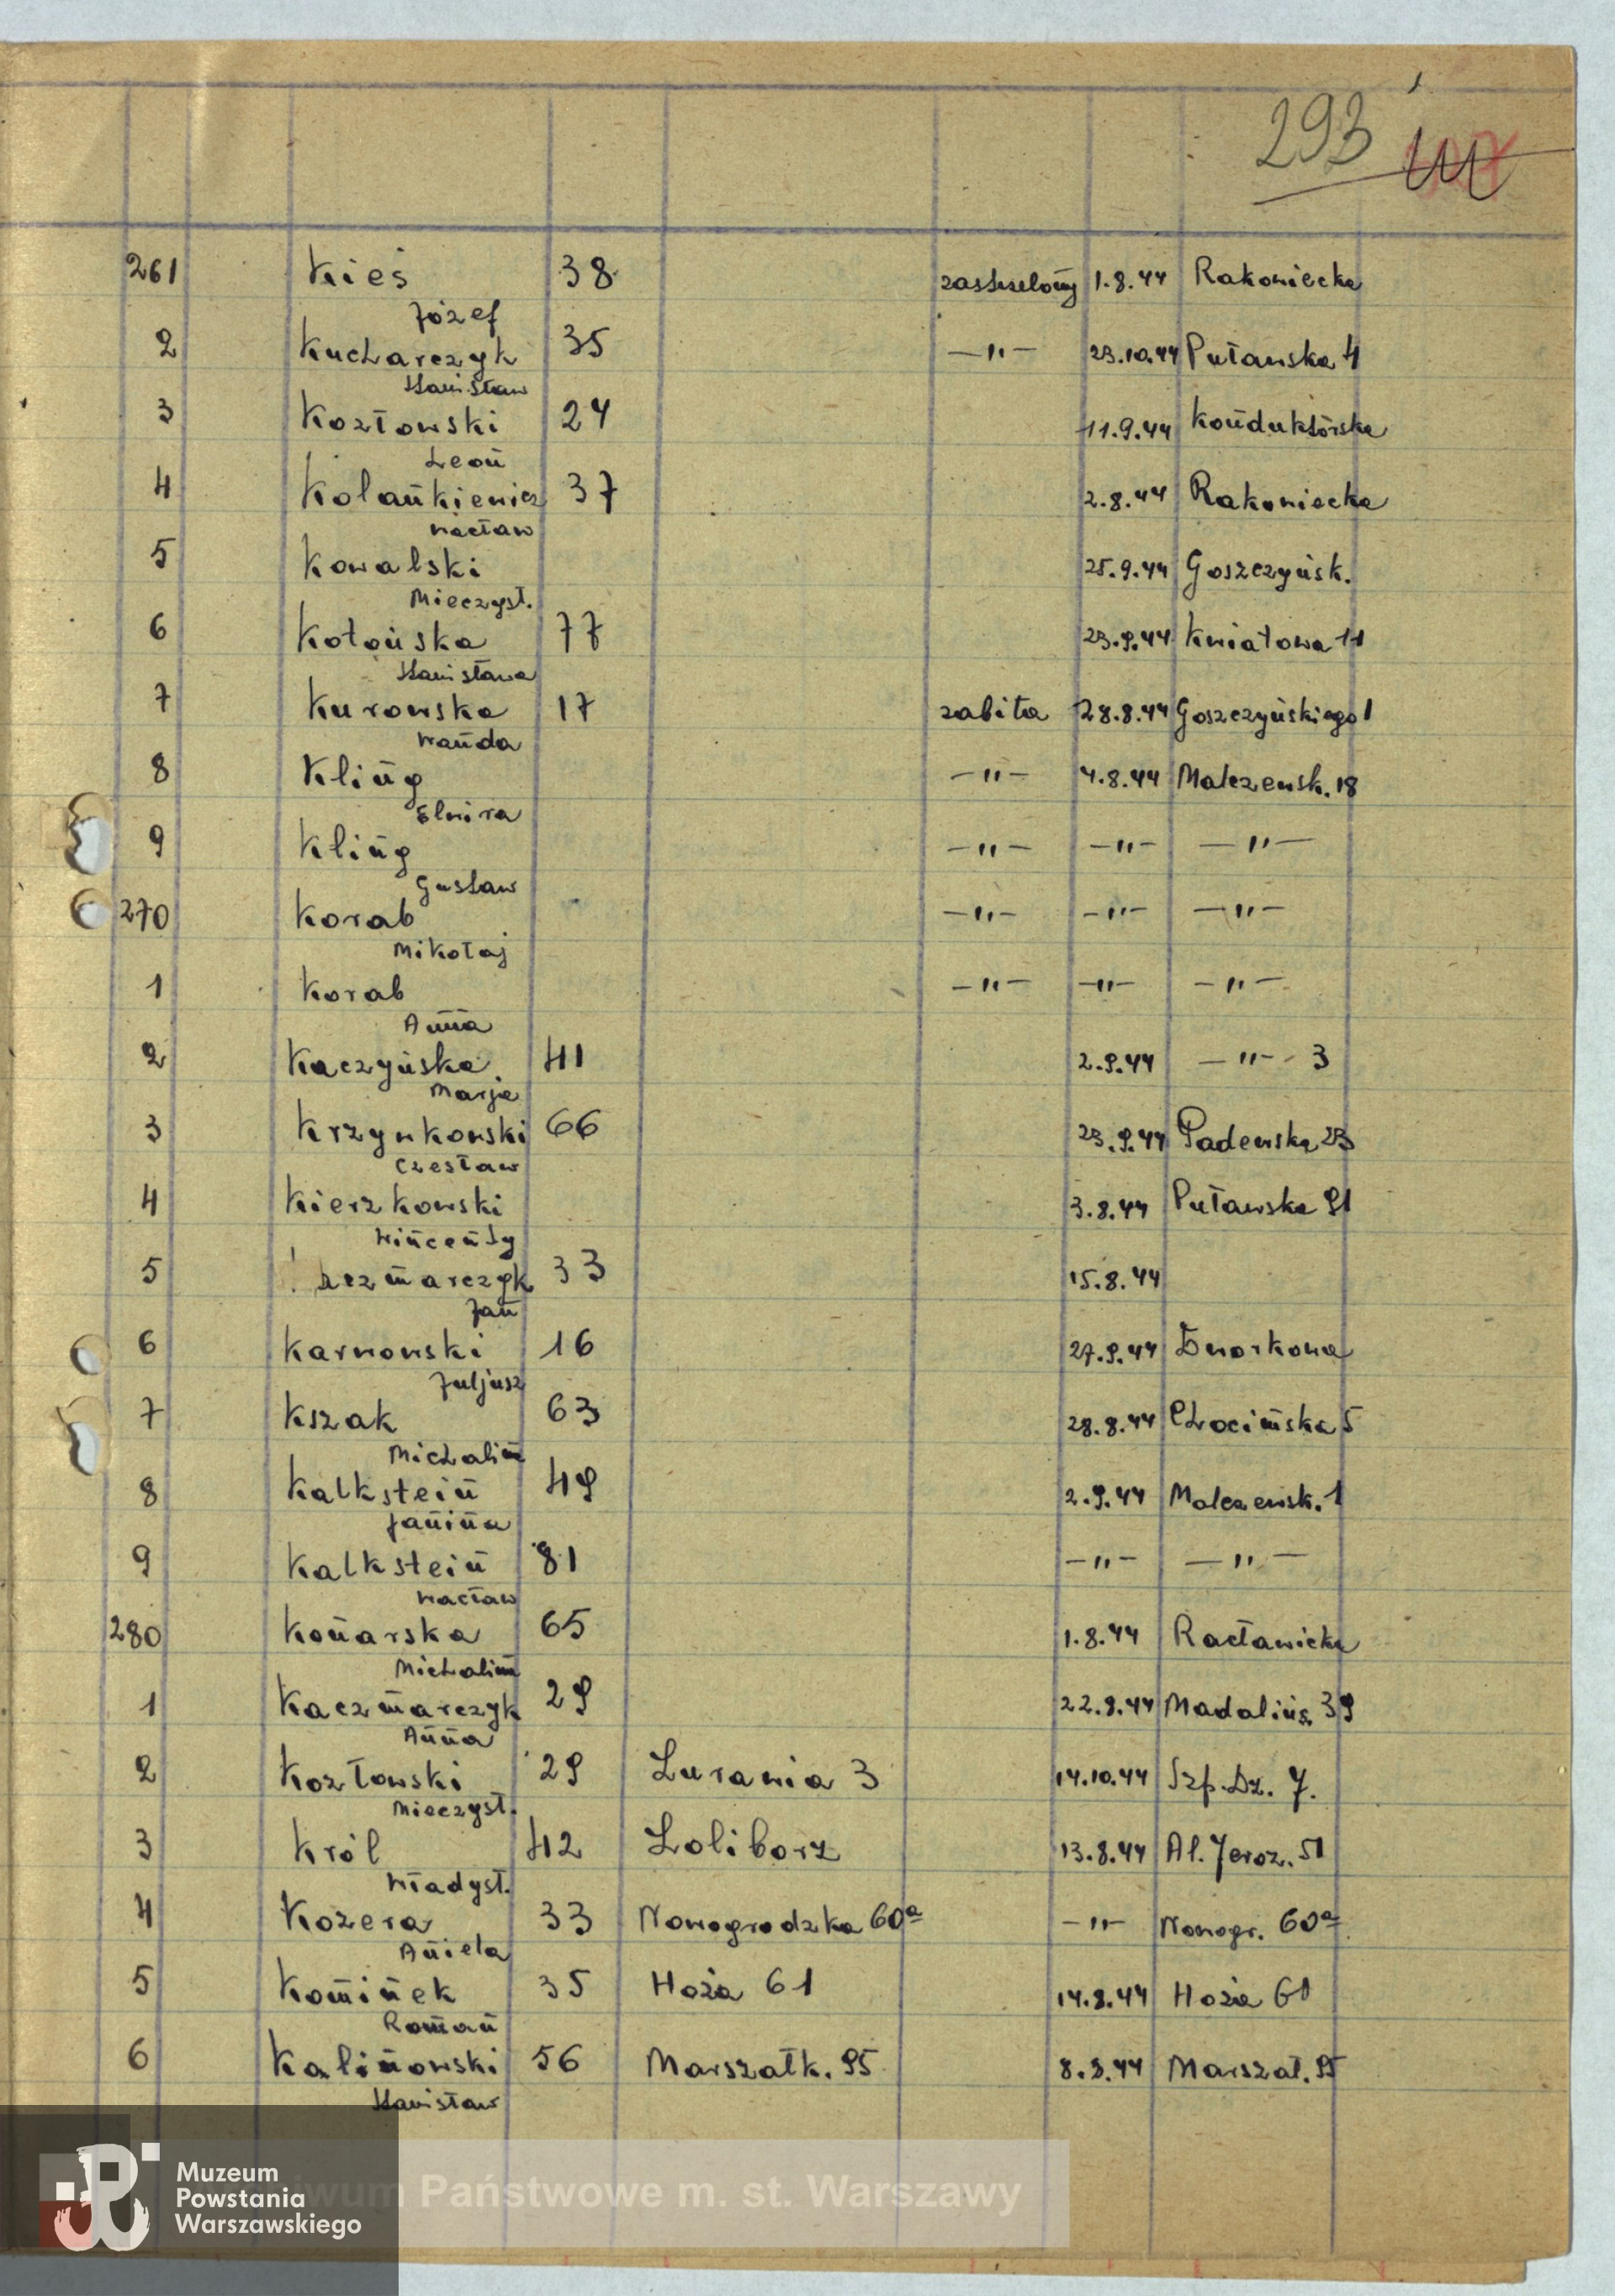 293
261 Kieś 38 zastrzelony 1.8.44 Rakowiecka
Józef
2 Kucharczyk 35 —"— 23.10.44 Puławska 4
Stanisław
3 Kozłowski 24 11.9.44 Konduktorska
Leon
4 Kolankiewicz 37 2.8.44 Rakowiecka
Wacław
5 Kowalski 25.9.44 Goszczyńsk.
Mieczysł.
6 Kotońska 77 23.9.44 Kwiatowa 11
Stanisława
7 Kurowska 17 zabita 28.8.44 Goszczyńskiego 1
Wanda
8 Kling —"— 4.8.44 Malczewsk. 18
Elwira
9 Kling —"— —"— —"—
Gustaw
270 Korab —"— —"— —"—
Mikołaj
1 Korab —"— —"— —"—
Anna
2 Kaczyńska 41 2.9.44 —"— 3
Marja
3 Krzywkowski 66 23.9.44 Padewska 23
Czesław
4 Kierzkowski 3.8.44 Puławska 91
Wincenty
5 33 15.8.44
Jan
6 Karnowski 16 27.9.44 Dworkowa
Juljusz
7 Kszak 63 28.8.44 Chocimska 5
Michalin
8 Kalkstein 49 2.9.44 Malczewsk. 1
Janina
9 Kalkstein 81 —"— —"—
Wacław
280 Konarska 65 1.8.44 Racławicka
Michalin
1 Kaczmarczyk 29 22.9.44 Madalińs. 39
Anna
2 Kozłowski 29 Żurawia 3 14.10.44 Szp. Dz. J.
Mieczysł.
3 Król 42 Żoliborz 13.8.44 Al. Jeroz. 51
Władysł.
4 Kozera 33 Nowogrodzka 60a —"— Nowogr. 60a
Aniela
5 Kominek 35 Hoża 61 14.8.44 Hoża 61
Roman
6 Kalinowski 56 Marszałk. 95 8.9.44 Marszał. 95
Stanisław
Muzeum
Powstania
Warszawskiego
wum Państwowe m. st. Warszawy